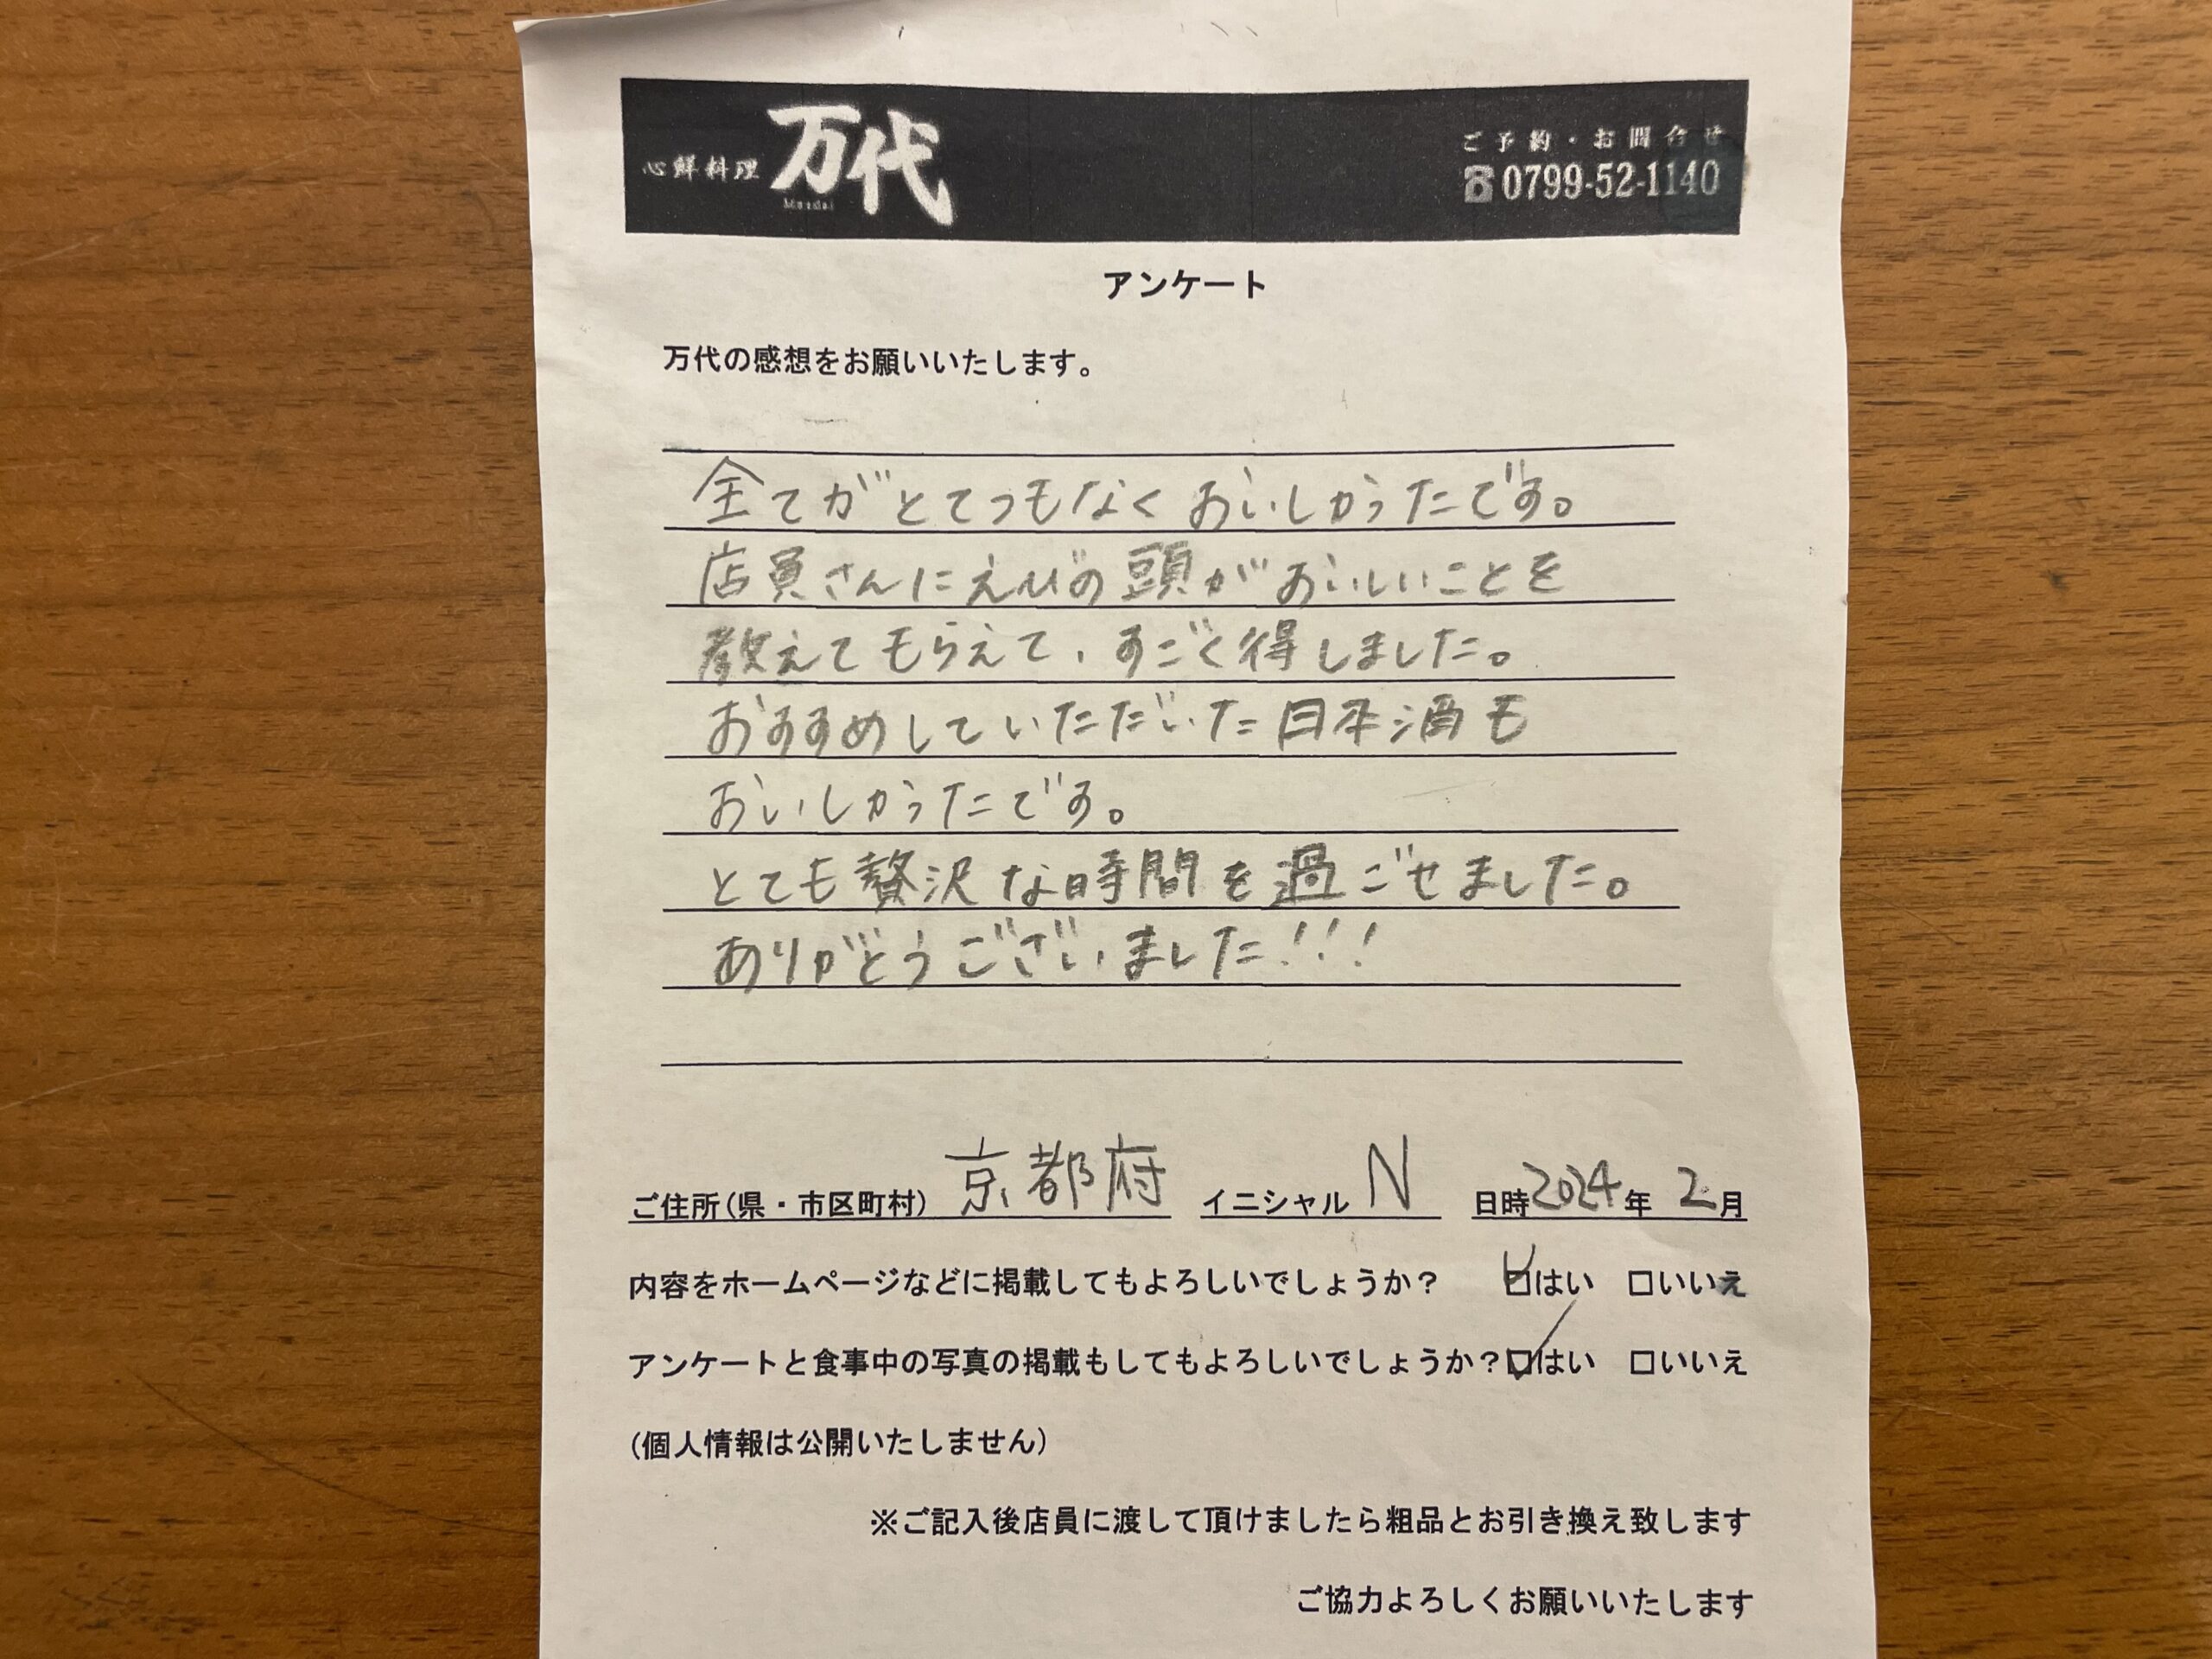 心鮮料理 万代
ご予約・お問合せ
☎0799-52-1140
アンケート
万代の感想をお願いいたします。
全てがとてつもなくおいしかったです。
店員さんにえびの頭がおいしいことを
教えてもらえて、すごく得しました。
おすすめしていただいた日本酒も
おいしかったです。
とても贅沢な時間を過ごせました。
ありがとうございました!!!
ご住所(県・市区町村) 京都府 イニシャル N 日時2024年 2月
内容をホームページなどに掲載してもよろしいでしょうか? ☑はい □いいえ
アンケートと食事中の写真の掲載もしてもよろしいでしょうか?☑はい □いいえ
(個人情報は公開いたしません)
※ご記入後店員に渡して頂けましたら粗品とお引き換え致します
ご協力よろしくお願いいたします